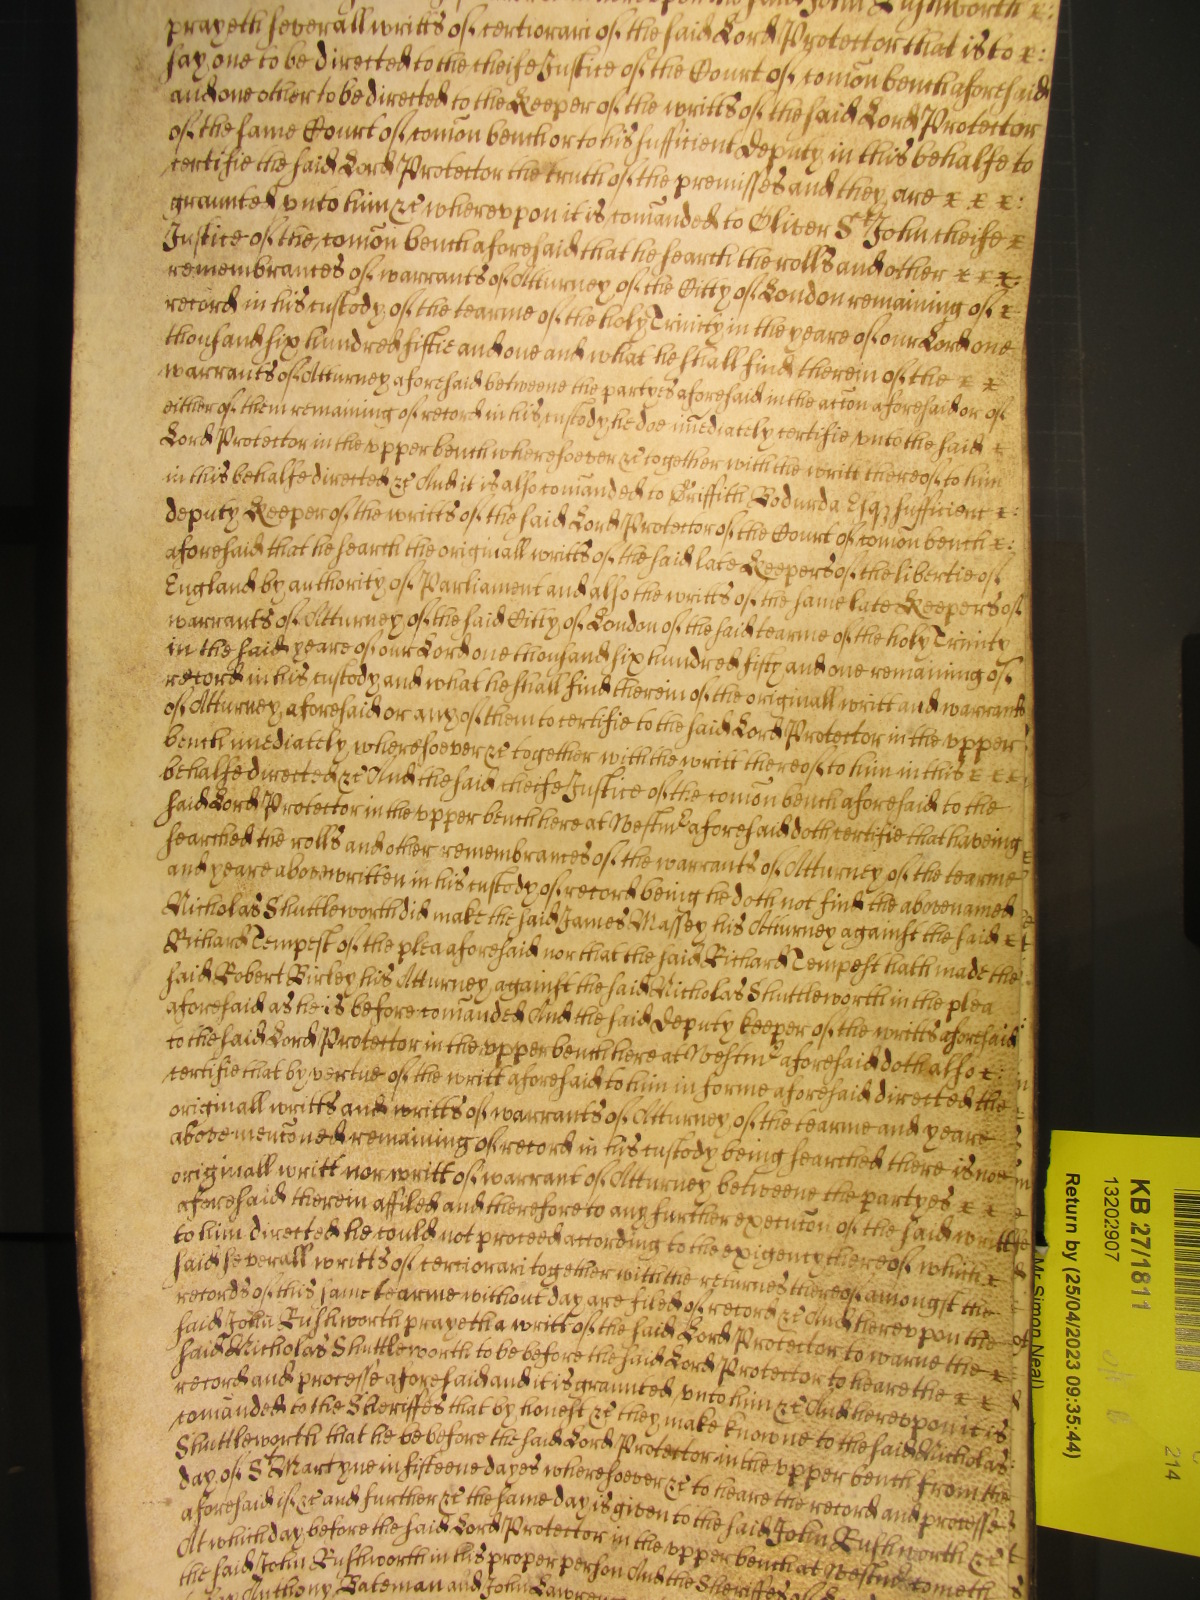 John Rushworth x:
prayeth severall writts of certiorari of the said Lord Protector that is to x:
say one to be directed to the cheife Justice of the Court of comon bench aforesaid
and one other to be directed to the Keeper of the writts of the said Lord Protector
of the same Court of comon bench or to his sufficient deputy in this behalfe to
certifie the said Lord Protector the truth of the premisses and they are x x x:
graunted unto him &c whereupon it is comanded to Oliver St John cheife x
Justice of the comon bench aforesaid that he search the rolls and other x x x:
remembrances of warrants of Atturney of the Citty of London remaining of x
record in his custody of the tearme of the holy Trinity in the yeare of our Lord one
thousand six hundred fiftie and one and what he shall find therein of the x x
warrants of Atturney aforesaid betweene the partyes aforesaid in the acton aforesaid or of
either of them remaining of record in his custody he doe imediately certifie unto the said x
Lord Protector in the upper bench wheresoever &c together with the writt thereof to him
in this behalfe directed &c And it is also comanded to Griffith Bodurda Esqz sufficient x:
deputy Keeper of the writts of the said Lord Protector of the Court of comon bench x:
aforesaid that he search the originall writts of the said late Keepers of the libertie of
England by authority of Parliament and also the writts of the same late Keepers of
warrants of Atturney of the said Citty of London of the said tearme of the holy Trinity
in the said yeare of our Lord one thousand six hundred fifty and one remaining of
record in his custody and what he shall find therein of the originall writt and warrants
of Atturney aforesaid or any of them to certifie to the said Lord Protector in the upper
bench imediately wheresoever &c together with the writt thereof to him in this x x x
behalfe directed &c And the said cheife Justice of the comon bench aforesaid to the
said Lord Protector in the upper bench here at Westmr aforesaid doth certifie that haveing
searched the rolls and other remembrances of the warrants of Atturney of the tearme
and yeare abovewritten in his custody of record being he doth not find the abovenamed
Nicholas Shuttleworth did make the said James Massey his Atturney against the said x
Richard Tempest of the plea aforesaid nor that the said Richard Tempest hath made the
said Robert Birley his Atturney against the said Nicholas Shuttleworth in the plea
aforesaid as he is before comanded And the said deputy keeper of the writts aforesaid
to the said Lord Protector in the upper bench here at Westmr aforesaid doth also x:
certifie that by vertue of the writt aforesaid to him in forme aforesaid directed the
originall writts and writts of warrants of Atturney of the tearme and yeare
abovementoned remaining of record in his custody being searched there is noe
originall writt nor writt of warrant of Atturney betweene the partyes x x
aforesaid therein affiled and therefore to any further executon of the said writt
to him directed he could not proceed according to the exigency thereof which x
said severall writts of certiorari together with the returnes thereof amongst the
records of this same tearme without day are filed of record &c And hereupon the
said John Rushworth prayeth a writt of the said Lord Protector to warne the x
said Nicholas Shuttleworth to be before the said Lord Protector to heare the x x
record and processe aforesaid and it is graunted unto him &c And hereupon it is
comanded to the Sheriffes that by honest &c they make knowne to the said Nicholas
Shuttleworth that he be before the said Lord Protector in the upper bench from the
day of St Martyne in fifteene dayes wheresoever &c to heare the record and processe
aforesaid if &c and further &c the same day is given to the said John Rushworth &c
At which day before the said Lord Protector in the upper bench at Westmr cometh
the said John Rushworth in his proper person And the Sheriffes of
Anthony Bateman and John Lawrence
KB 27/1811
13202907
Return by (25/04/2023 09:35:44)
Mr Simon Neal)
214